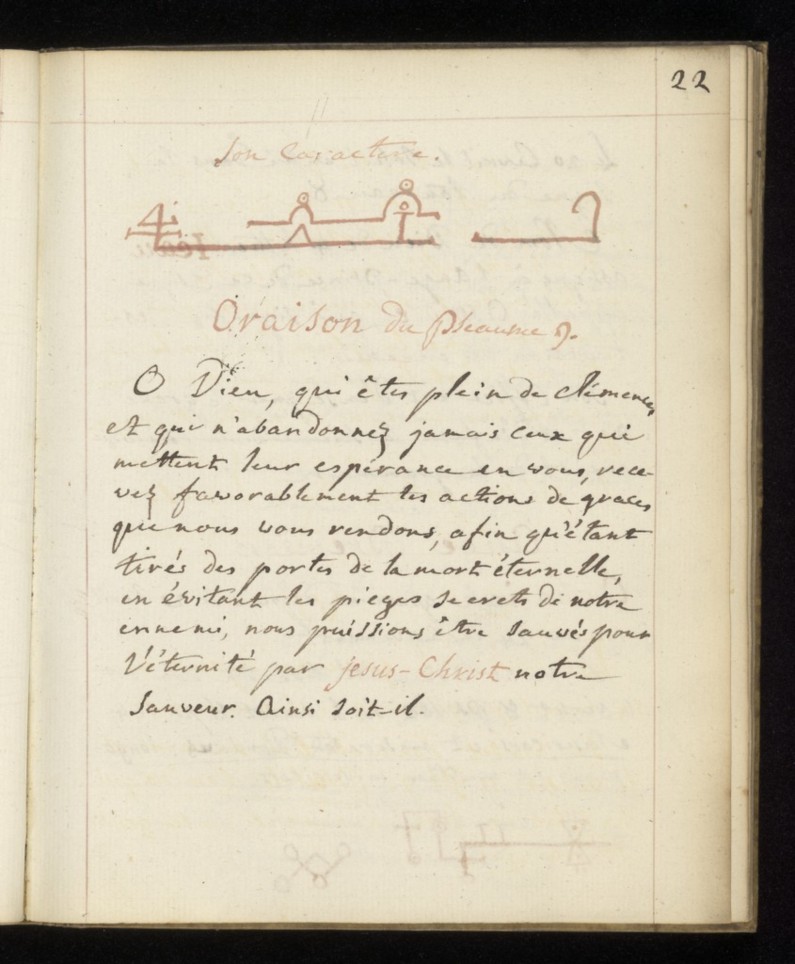 22
Son Caractere.
Oraison du Pseaume 9.
O Dieu, qui êtes plein de clémence,
et qui n'abandonnez jamais ceux qui
mettent leur espérance en vous, rece-
vez favorablement les actions de graces
que nous vous rendons, afin qu'étant
tirés des portes de la mort éternelle,
en évitant les pieges secrets de notre
ennemi, nous puissions être sauvés pour
l'éternité par jesus-Christ notre
Sauveur. Ainsi soit-il.